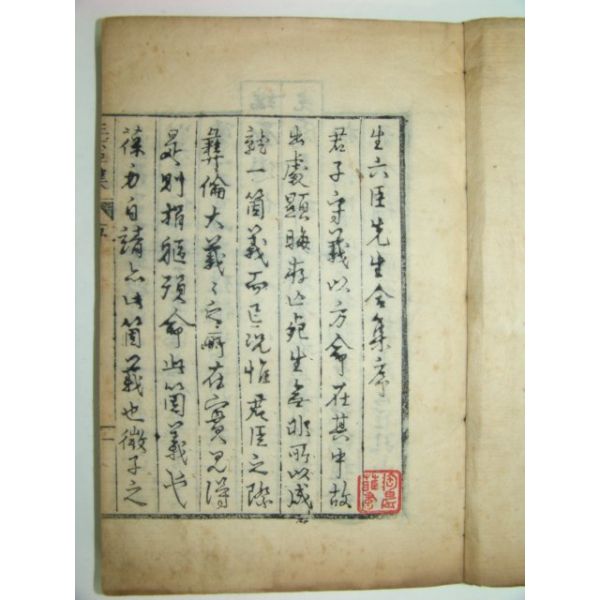 生六臣先生合集序
君子守義以方命在其中故
出處顯晦存亡死生無非所以成
就一箇義而已況惟君臣之際
彝倫大義義之所在實見得
是則捐軀殞命此箇義也
葆身自靖亦此箇義也微子之